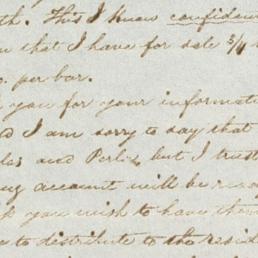 th. This I know confiden
n that I have for sale 3/4
per bar.
you for your informati
d I am sorry to say that
and Perlis, but I trust
account will be
you wish to have them
to distribute to the resid